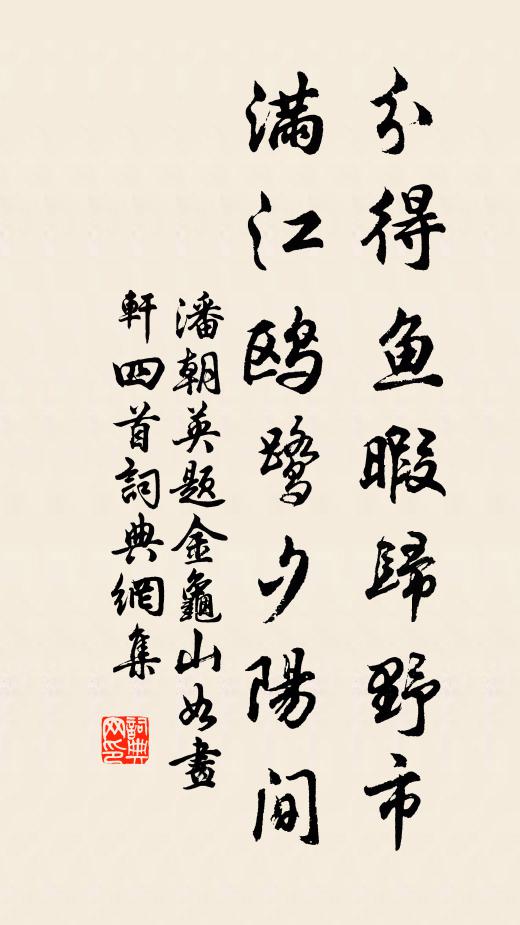 分得魚暇歸野市
滿江鷗鷺夕陽間
潘朝英題金龜山如畫
軒四首詞典網集
詞典
网印